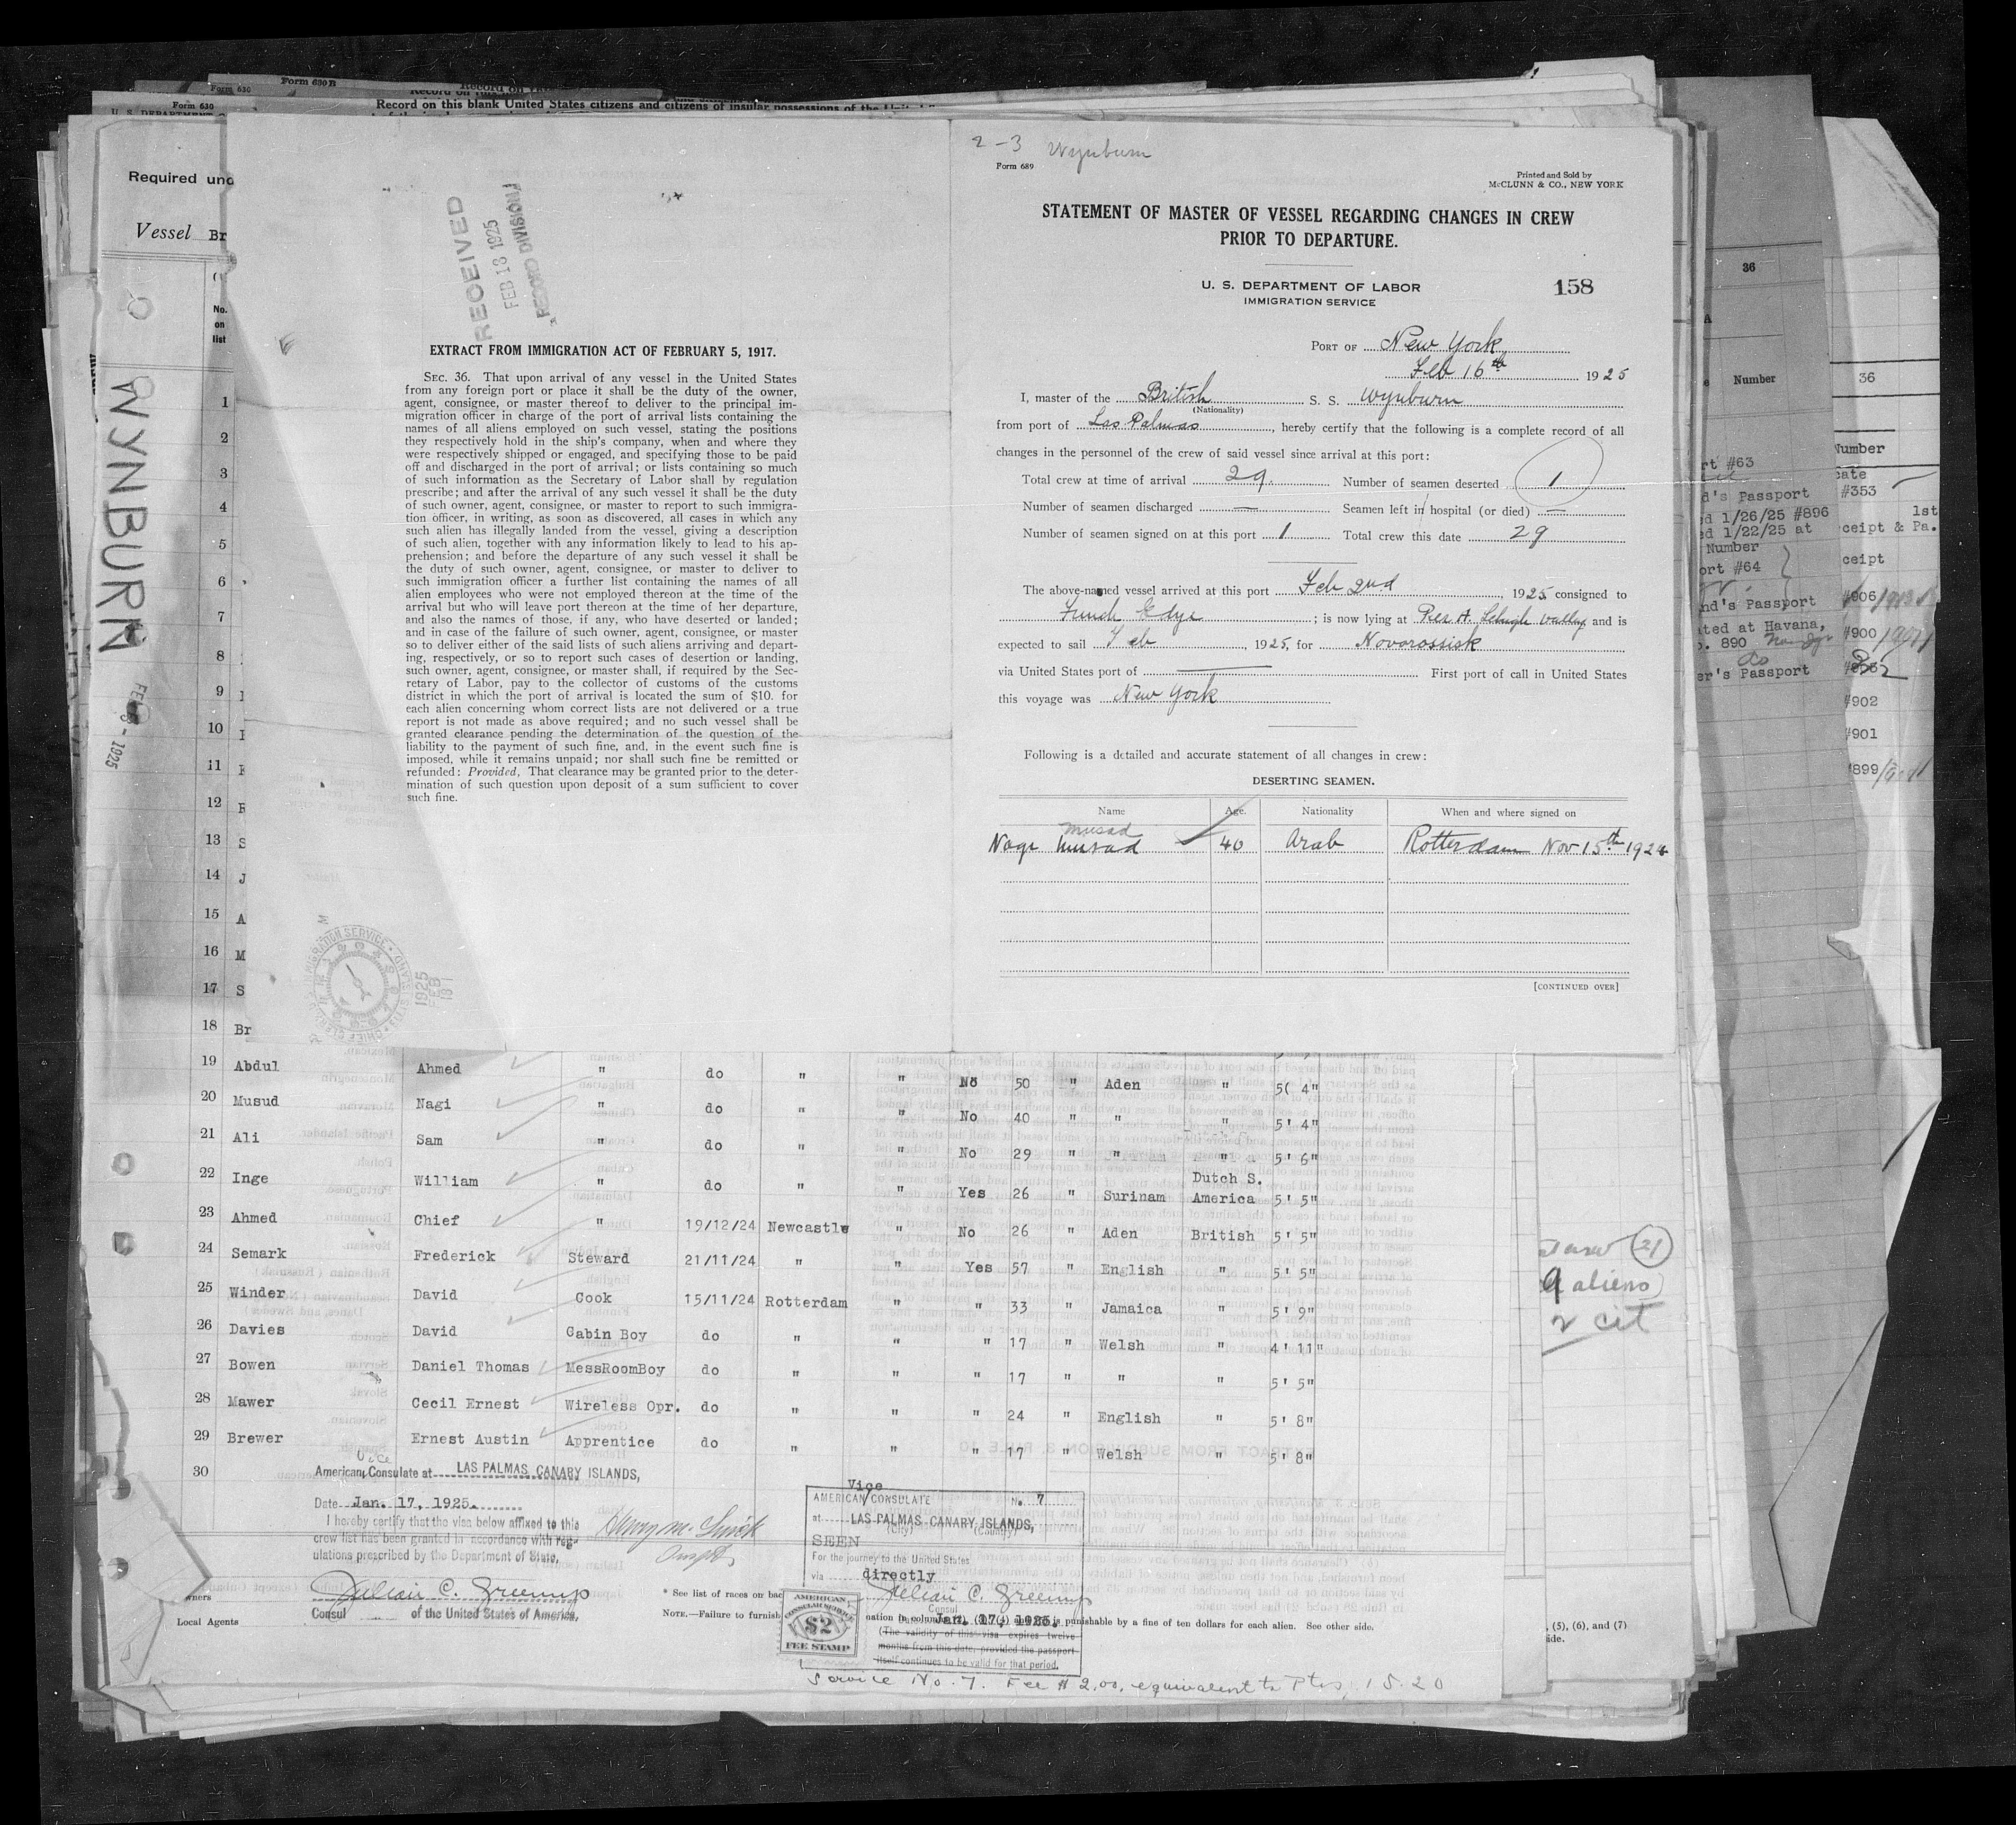 Form 630
Form 630 B
Form 630
U. S. DEPARTMENT
Record on this blank United States citizens and citizens of insular possessions of the
Required und
Vessel Br
WYNBURN
1925
No.
on
list
1
2
3
4
5
6
7
8
9
10
11
12
13 S
14 J
15 A
16 M
17 S
18 Br
RECEIVED
FEB 18 1925
RECORD DIVISION
EXTRACT FROM IMMIGRATION ACT OF FEBRUARY 5, 1917.
SEC. 36. That upon arrival of any vessel in the United States
from any foreign port or place it shall be the duty of the owner,
agent, consignee, or master thereof to deliver to the principal im-
migration officer in charge of the port of arrival lists containing the
names of all aliens employed on such vessel, stating the positions
they respectively hold in the ship's company, when and where they
were respectively shipped or engaged, and specifying those to be paid
off and discharged in the port of arrival; or lists containing so much
of such information as the Secretary of Labor shall by regulation
prescribe; and after the arrival of any such vessel it shall be the duty
of such owner, agent, consignee, or master to report to such immigra-
tion officer, in writing, as soon as discovered, all cases in which any
such alien has illegally landed from the vessel, giving a description
of such alien, together with any information likely to lead to his ap-
prehension; and before the departure of any such vessel it shall be
the duty of such owner, agent, consignee, or master to deliver to
such immigration officer a further list containing the names of all
alien employees who were not employed thereon at the time of the
arrival but who will leave port thereon at the time of her departure,
and also the names of those, if any, who have deserted or landed;
and in case of the failure of such owner, agent, consignee, or master
so to deliver either of the said lists of such aliens arriving and depart-
ing, respectively, or so to report such cases of desertion or landing,
such owner, agent, consignee, or master shall, if required by the Sec-
retary of Labor, pay to the collector of customs of the customs
district in which the port of arrival is located the sum of $10. for
each alien concerning whom correct lists are not delivered or a true
report is not made as above required; and no such vessel shall be
granted clearance pending the determination of the question of the
liability to the payment of such fine, and, in the event such fine is
imposed, while it remains unpaid; nor shall such fine be remitted or
refunded: Provided, That clearance may be granted prior to the deter-
mination of such question upon deposit of a sum sufficient to cover
such fine.
IMMIGRATION SERVICE
1925
FEB
18
2-3 Wynburn
Form 689
Printed and Sold by
McCLUNN & CO., NEW YORK
STATEMENT OF MASTER OF VESSEL REGARDING CHANGES IN CREW
PRIOR TO DEPARTURE.
U. S. DEPARTMENT OF LABOR
IMMIGRATION SERVICE
158
PORT OF New York
Feb 16th 1925
I, master of the British S. S. Wynburn
(Nationality)
from port of Las Palmas, hereby certify that the following is a complete record of all
changes in the personnel of the crew of said vessel since arrival at this port:
Total crew at time of arrival 29. Number of seamen deserted 1
Number of seamen discharged — Seamen left in hospital (or died) —
Number of seamen signed on at this port 1 Total crew this date 29
The above-named vessel arrived at this port Feb 2nd, 1925 consigned to
Funch Edye; is now lying at Pier A Lehigh Valley and is
expected to sail Feb, 1925, for Novorossisk
via United States port of First port of call in United States
this voyage was New York
Following is a detailed and accurate statement of all changes in crew:
DESERTING SEAMEN.
Name Age. Nationality When and where signed on
musad
Nagi Musad 40 Arab Rotterdam Nov 15th 1924
[CONTINUED OVER]
19 Abdul Ahmed " do " " No 50 " Aden " 5' 4"
20 Musud Nagi " do " " No 40 " " " 5' 4"
21 Ali Sam " do " " No 29 " " " 5' 6"
22 Inge William " do " " Yes 26 " Surinam Dutch S. America 5' 5"
23 Ahmed Chief " 19/12/24 Newcastle " No 26 " Aden British 5' 5"
24 Semark Frederick Steward 21/11/24 " " Yes 57 " English " 5' 5"
25 Winder David Cook 15/11/24 Rotterdam " " 33 " Jamaica " 5' 9"
26 Davies David Cabin Boy do " " " 17 " Welsh " 4' 11"
27 Bowen Daniel Thomas MessRoomBoy do " " " 17 " " " 5' 5"
28 Mawer Cecil Ernest Wireless Opr. do " " " 24 " English " 5' 8"
29 Brewer Ernest Austin Apprentice do " " " 17 " Welsh " 5' 8"
30
Vice
American Consulate at LAS PALMAS CANARY ISLANDS,
Date Jan. 17, 1925.
I hereby certify that the visa below affixed to this
crew list has been granted in accordance with reg-
ulations prescribed by the Department of State.
Julian C. Greenup
Consul of the United States of America.
wners
Local Agents
Vice
AMERICAN CONSULATE No. 7
at LAS PALMAS CANARY ISLANDS,
(City) (Country)
SEEN
For the journey to the United States
via directly
Julian C. Greenup
Consul
Jan. 17, 1925.
(The validity of this visa expires twelve
months from this date, provided the passport
itself continues to be valid for that period.
AMERICAN
CONSULAR SERVICE
$2
FEE STAMP
* See list of races on bac
NOTE.—Failure to furnish
is punishable by a fine of ten dollars for each alien. See other side.
Service No. 7. Fee $2.00, equivalent to Ptas, 15.20
36
Number
rt #63
d's Passport
ed 1/26/25 #896
ed 1/22/25 at
Number
ort #64
nd's Passport
ated at Havana,
o. 890
do
er's Passport
36
Number
cate
#353
1st
ceipt & Pa.
ceipt
#906
#900
#902
#901
#899
21
9 aliens
2 cit
, (5), (6), and (7)
ide.